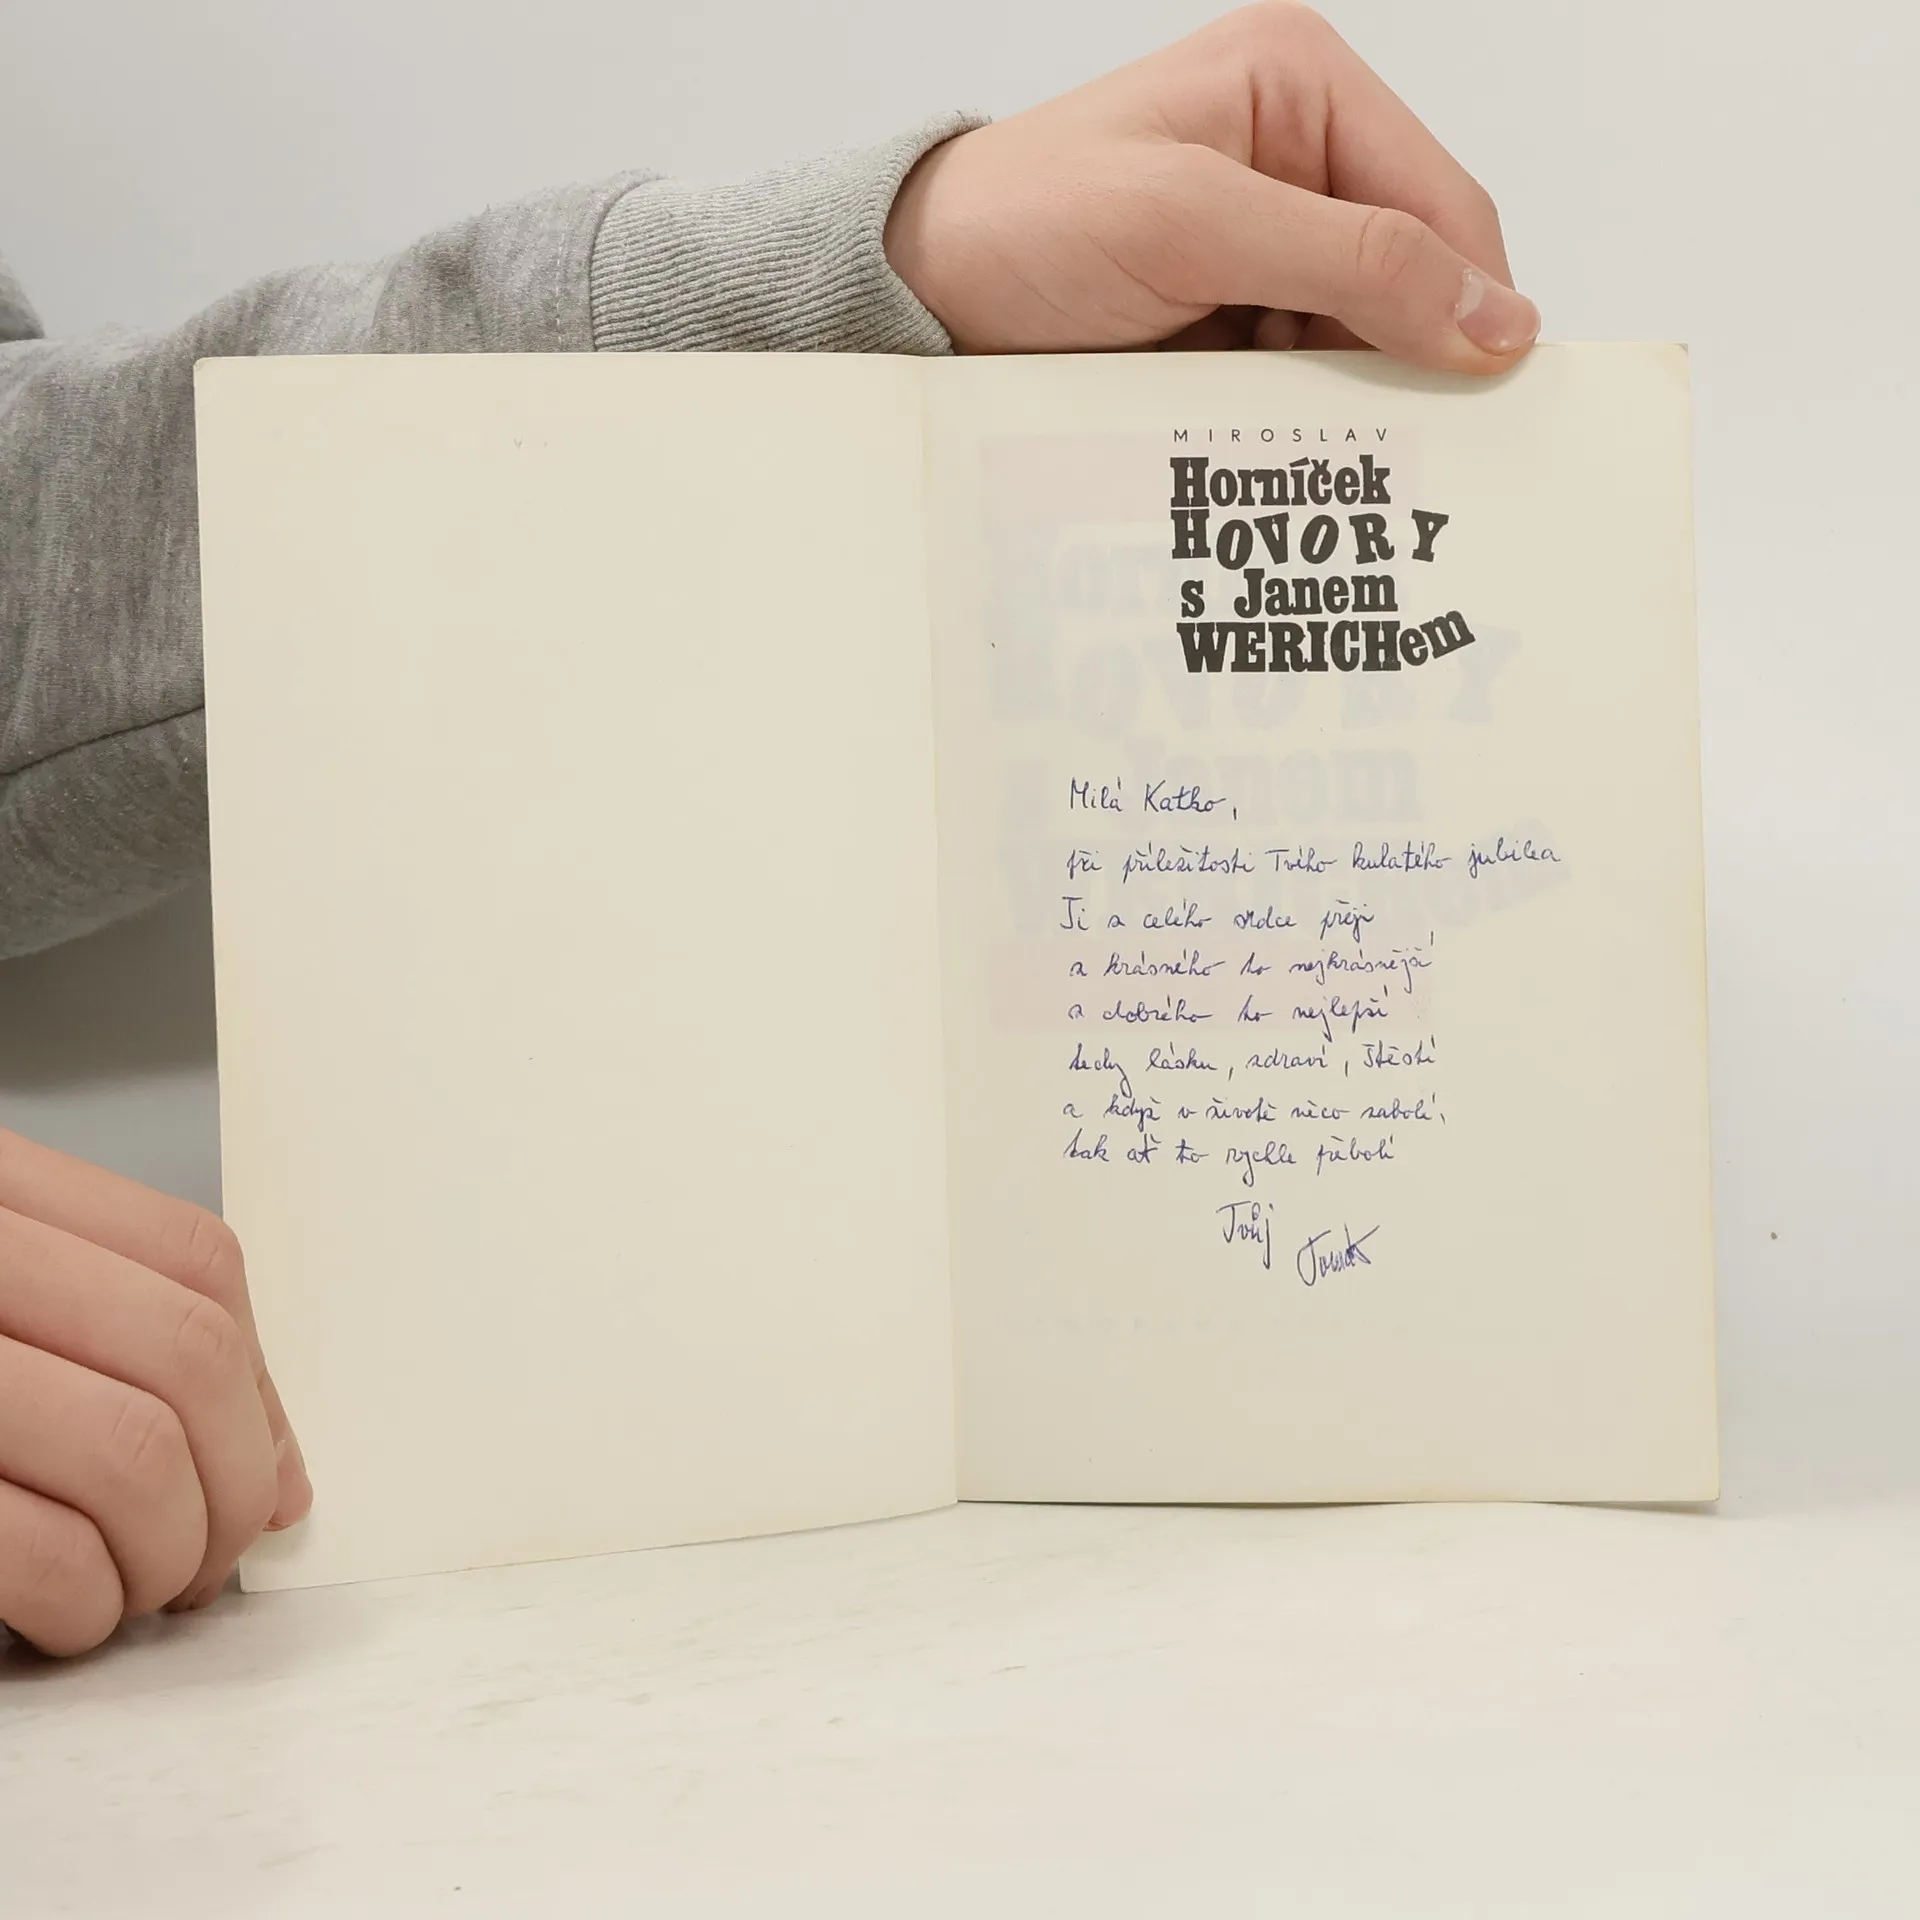 MIROSLAV
Horníček
HOVORY
s Janem
WERICHem
Milá Katko,
při příležitosti Tvého kulatého jubilea
Ti z celého srdce přeji
z krásného to nejkrásnější
z dobrého to nejlepší
tedy lásku, zdraví, štěstí
a když v životě něco zabolí,
tak ať to rychle přebolí
Tvůj